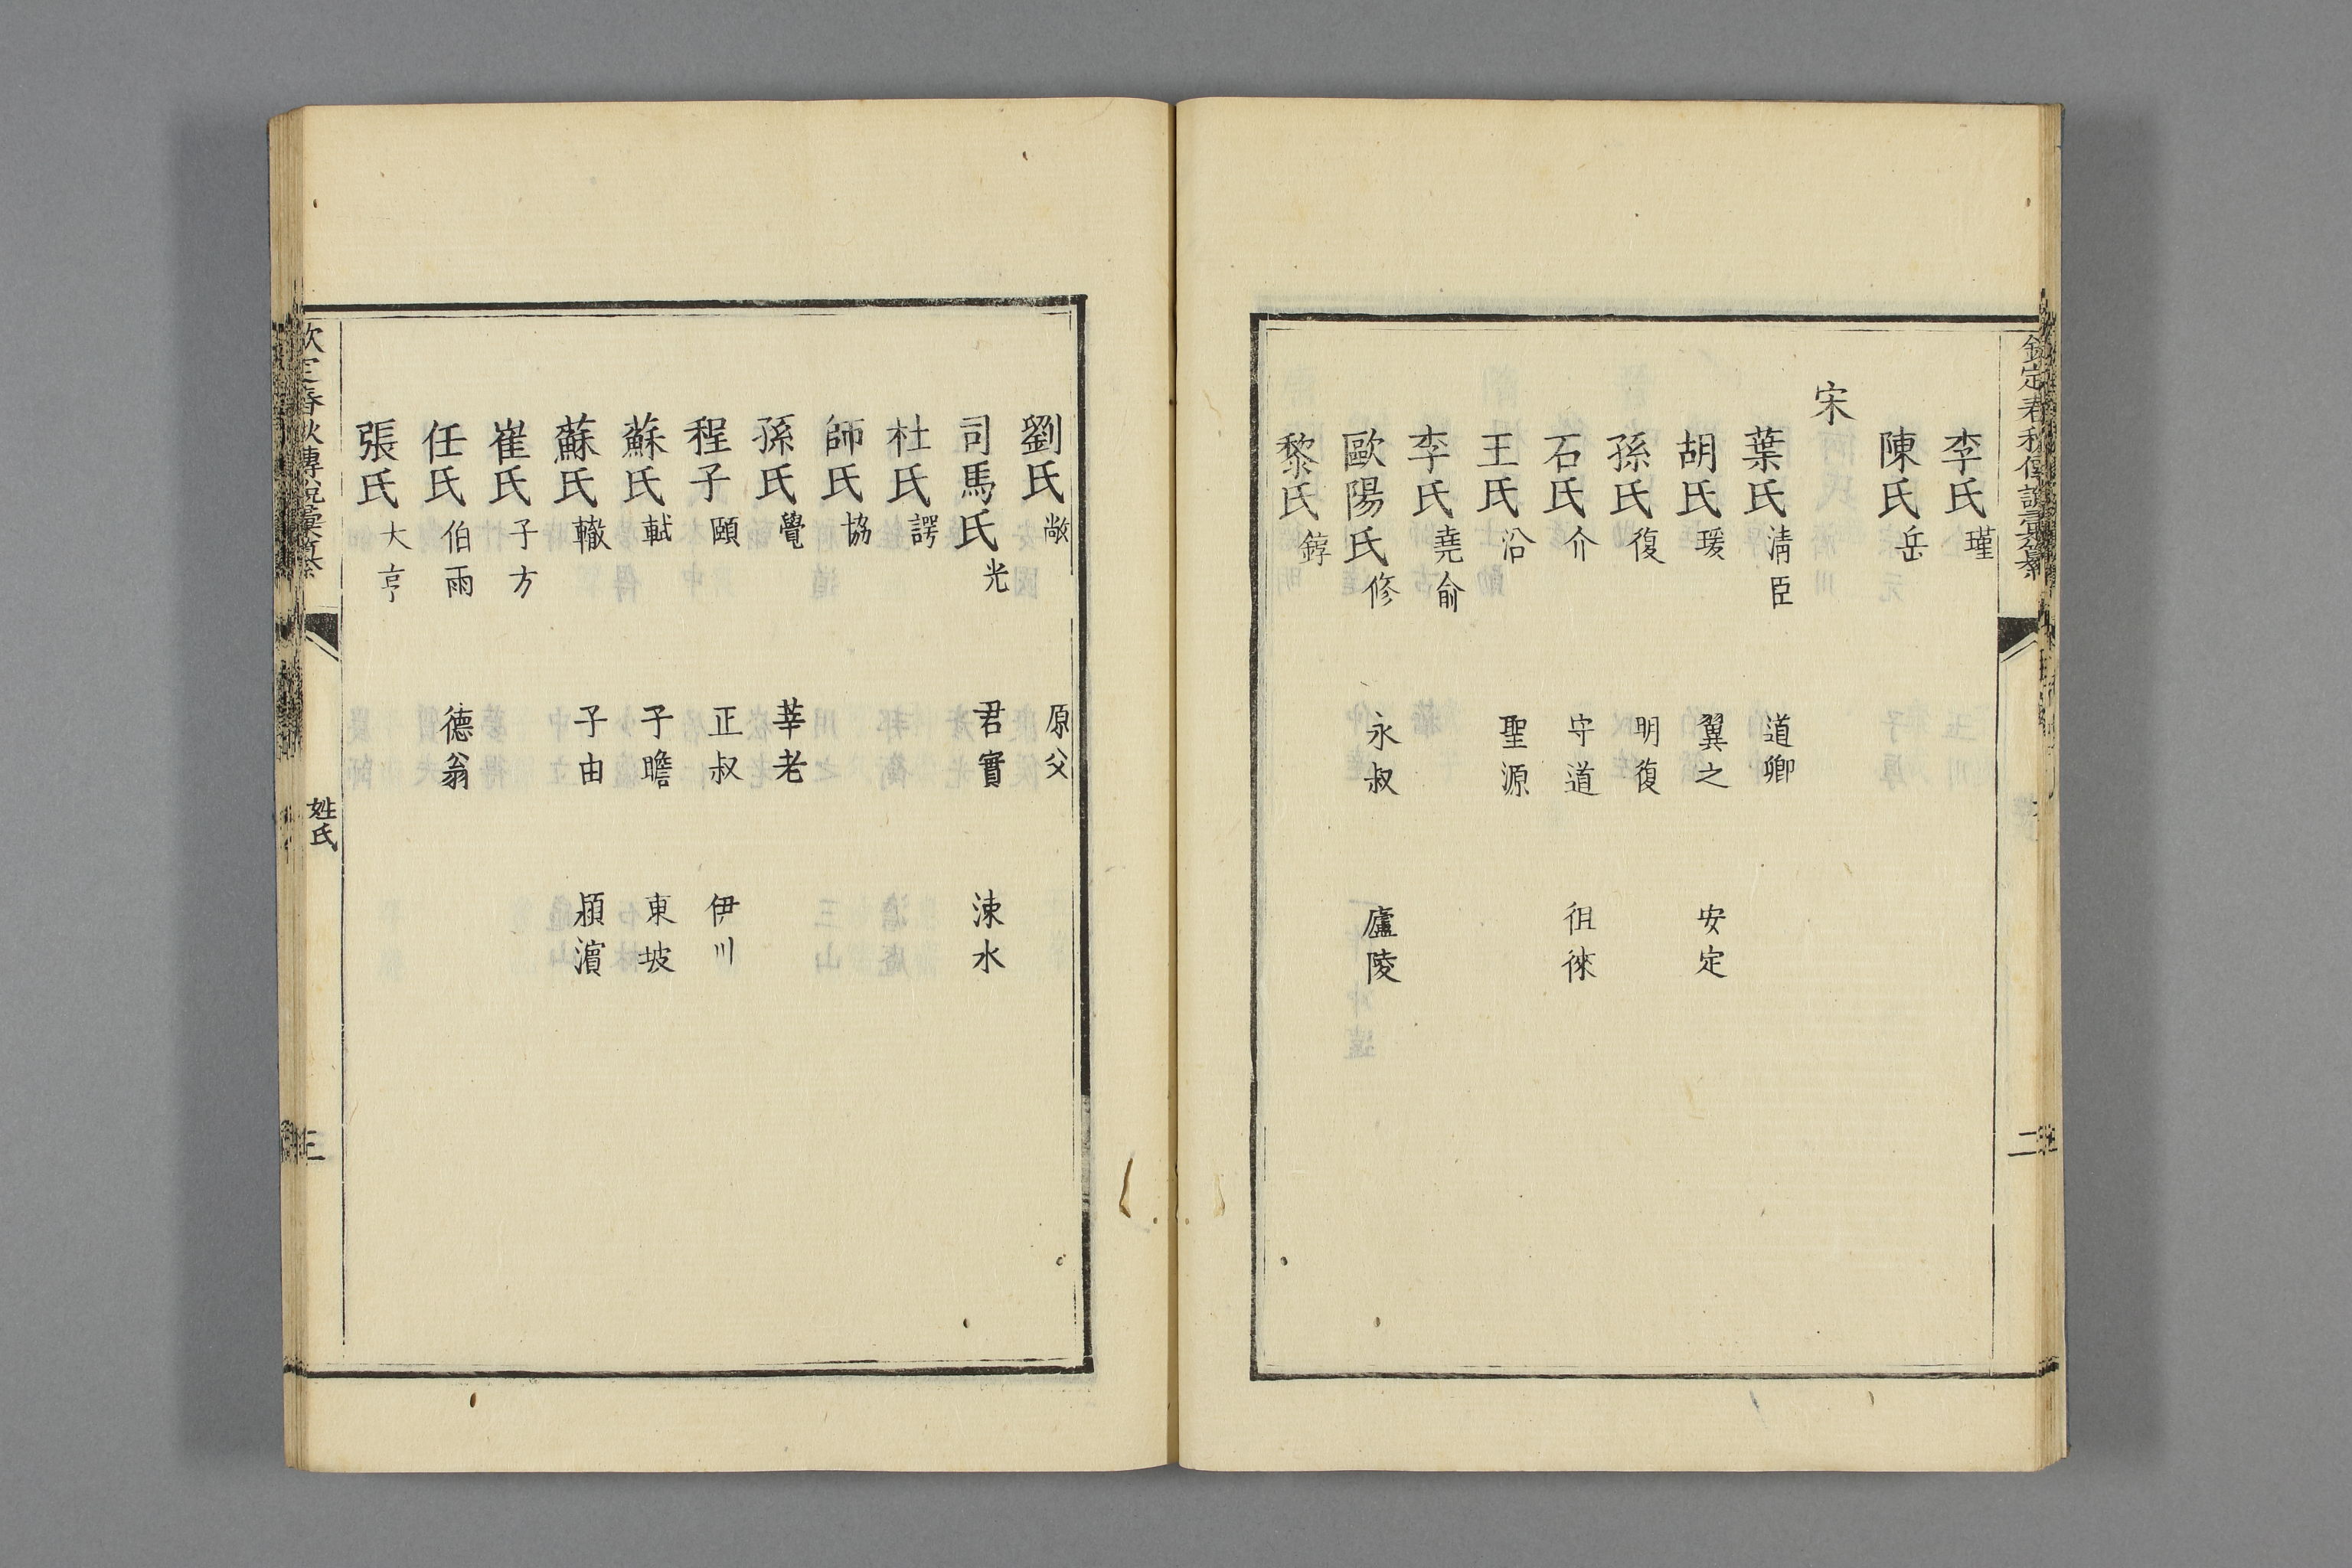 欽定春秋傳說彙纂
二
李氏瑾
陳氏岳
宋
葉氏清臣 道卿
胡氏瑗 翼之 安定
孫氏復 明復
石氏介 守道 徂徠
王氏沿 聖源
李氏堯俞
歐陽氏修 永叔 廬陵
黎氏錞
劉氏敞 原父
司馬氏光 君實 涑水
杜氏諤
師氏協
孫氏覺 莘老
程子頤 正叔 伊川
蘇氏軾 子瞻 東坡
蘇氏轍 子由 潁濵
崔氏子方
任氏伯雨 德翁
張氏大亨
欽定春秋傳說彙纂
姓氏
三